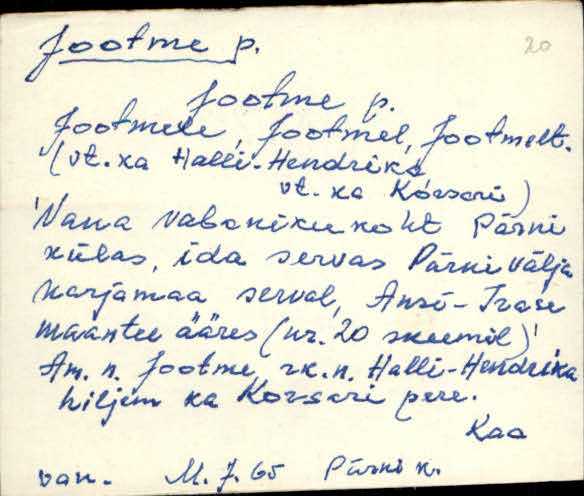 Jootme p.
20
Jootme p.
Jootmele, Jootmel, Jootmelt.
(vt. ka Halli-Hendrika
vt. ka Korsari)
'Vana vabanikukoht Pärni
külas, ida servas Pärni välja
karjamaa serval, Ansi-Irase
maantee ääres (nr. 20 skeemil)'
Am. n. Jootme, rk. n. Halli-Hendrika
hiljem ka Korsari pere.
Kaa
van. M. J. 65 Pärni k.